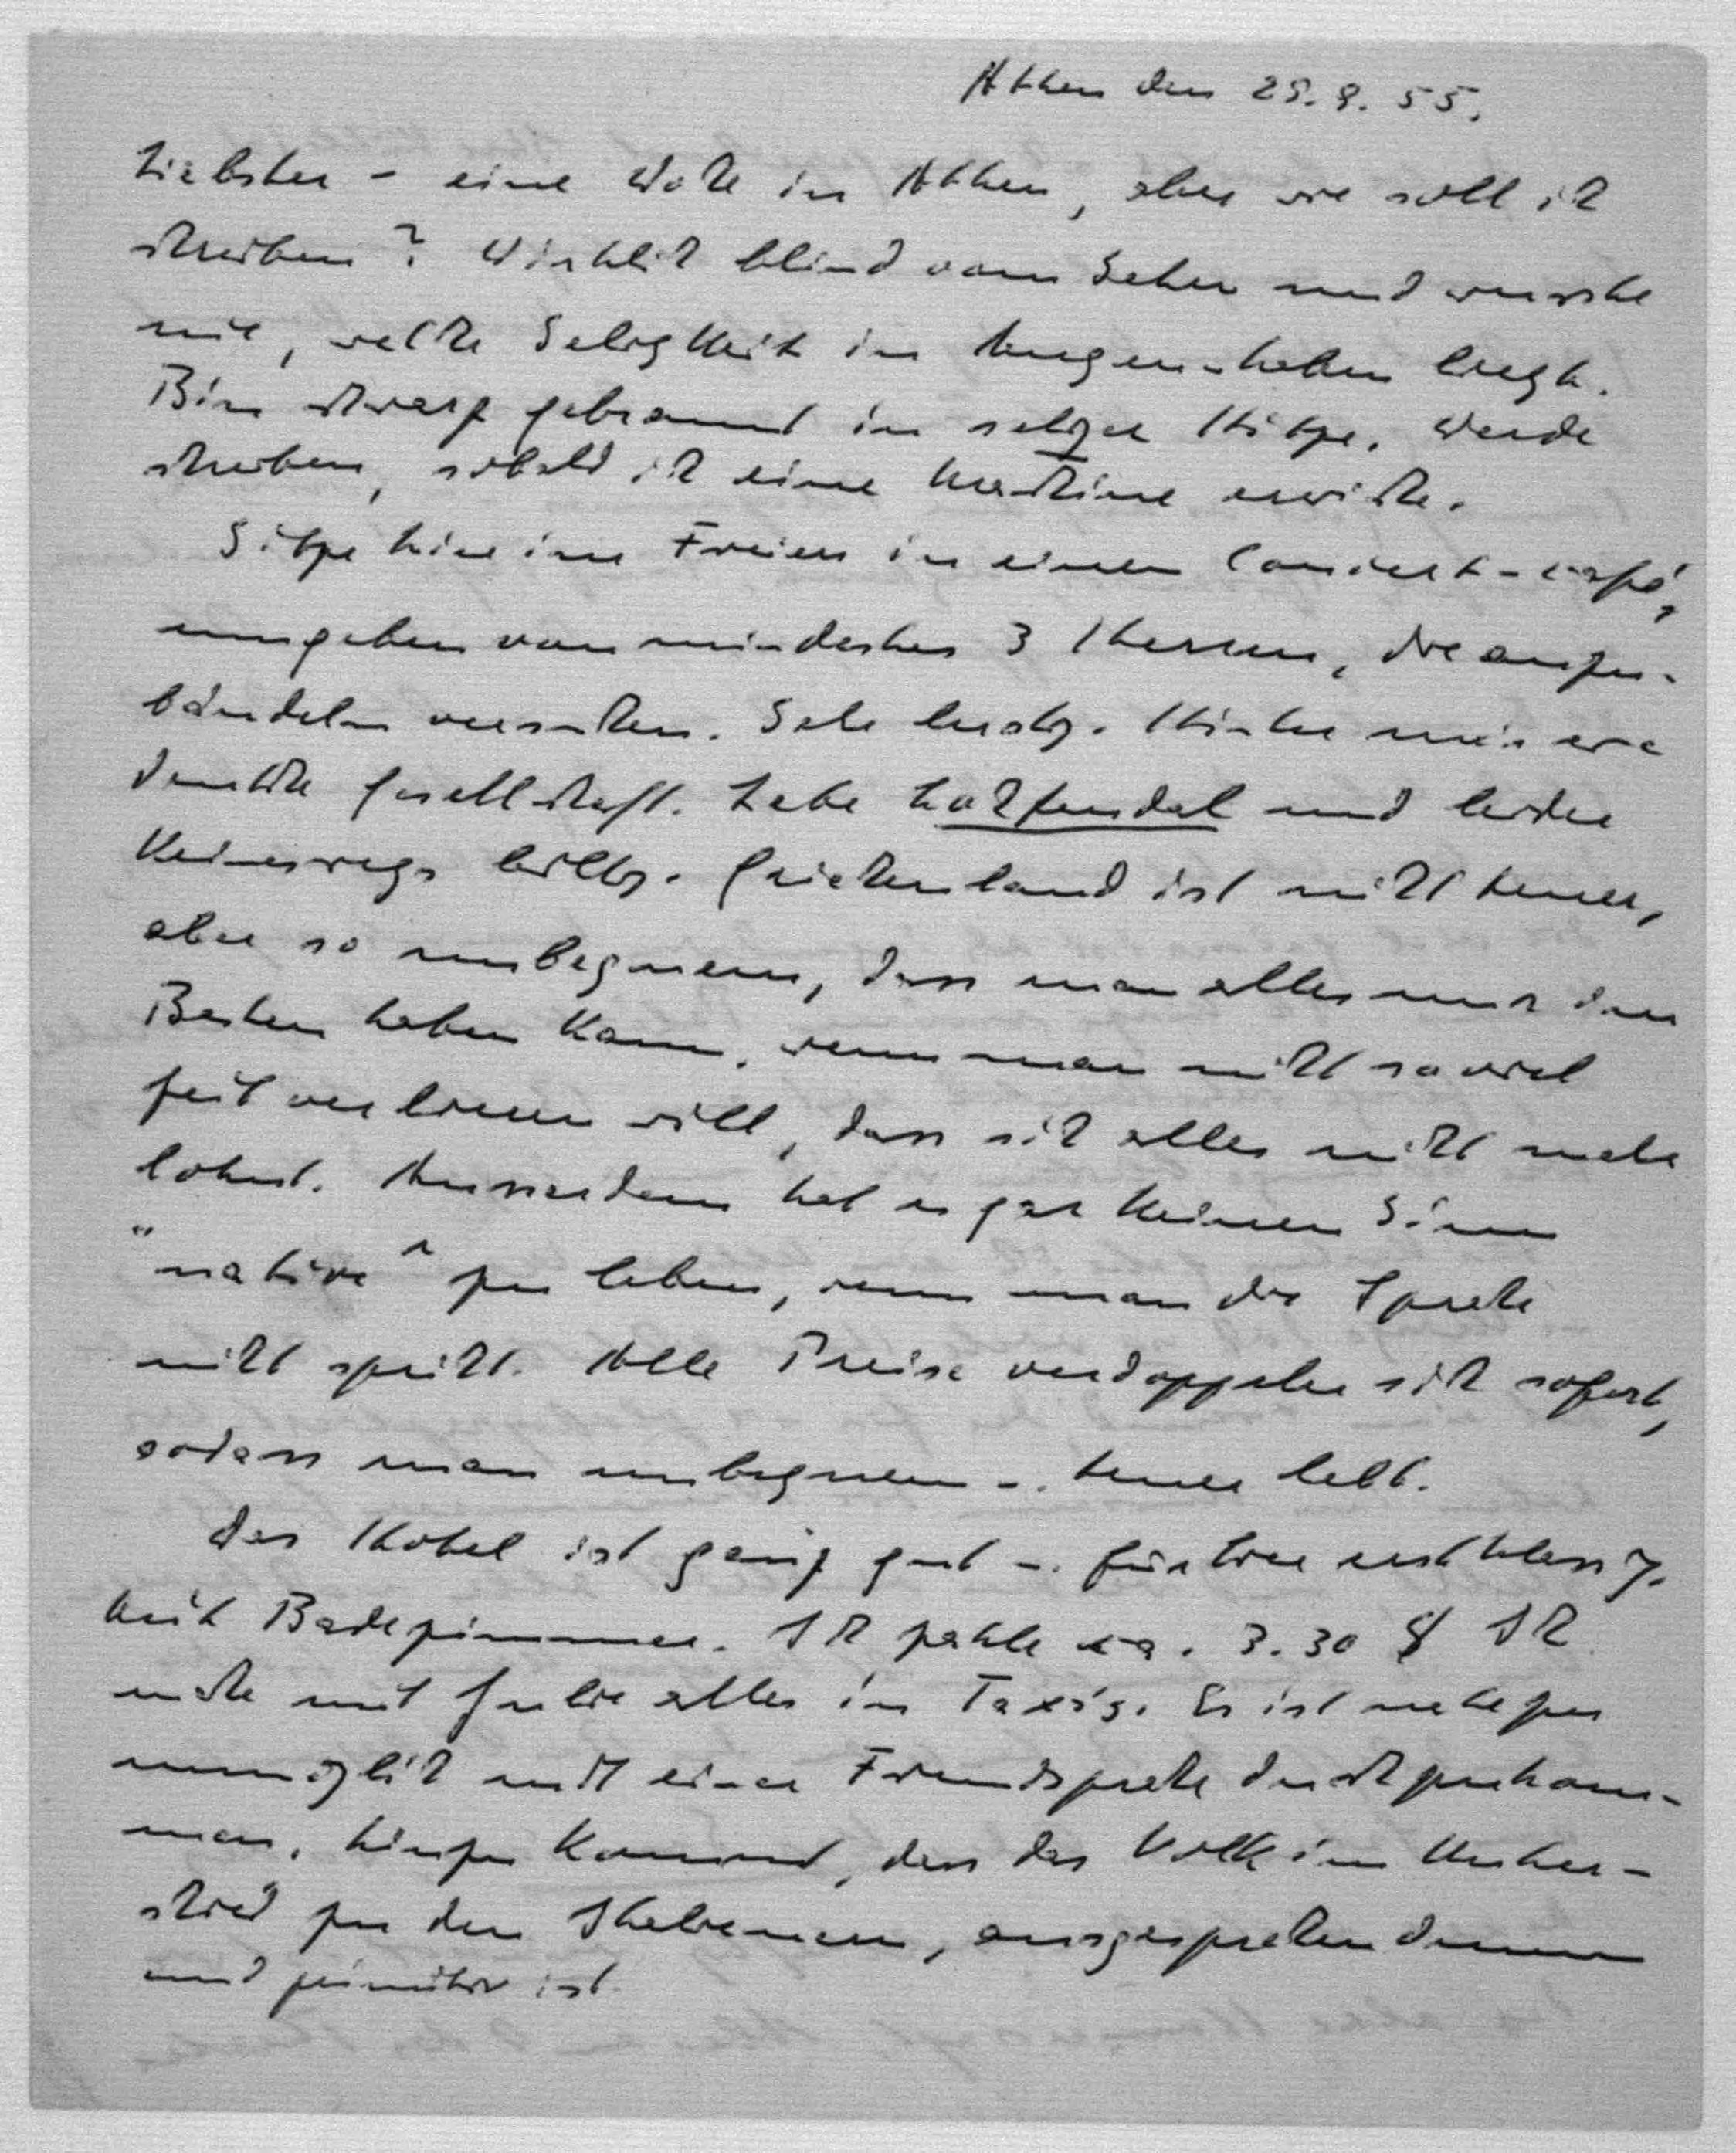 Athen den 28.9.55.
Liebster - eine Woche in Athen, aber wie soll ich
schreiben? Wirklich blind vom Sehen und wusste
nie, welche Seligkeit im Augen-haben liegt.
Bin schwarz gebrannt in seliger Hitze. Werde
schreiben, sobald ich eine Maschine erwische.
Sitze hier im Freien in einem Concert-café,
umgeben von mindestens 3 Herren, die anzu-
bändeln versuchen. Sehr lustig. Hinter mir eine
deutsche Gesellschaft. Lebe hochfeudal und leider
keineswegs billig. Griechenland ist nicht teuer,
aber so unbequem, dass man alles nur vom
Besten haben kann, wenn man nicht so viel
Zeit verlieren will, dass sich alles nicht mehr
lohnt. Ausserdem hat es gar keinen Sinn
"native" zu leben, wenn man die Sprache
nicht spricht. Alle Preise verdoppeln sich sofort,
sodass man unbequem u. teuer lebt.
Das Hotel ist ganz gut u. für hier erstklassig.
Mit Badezimmer. Ich zahle ca. 3.30 $ Ich
mache mit Julie alles in Taxis. Es ist nahezu
unmöglich mit einer Fremdsprache durchzukom-
men, hinzu kommt, dass das Volk im Unter-
schied zu den Italienern, ausgesprochen dumm
und primitiv ist.